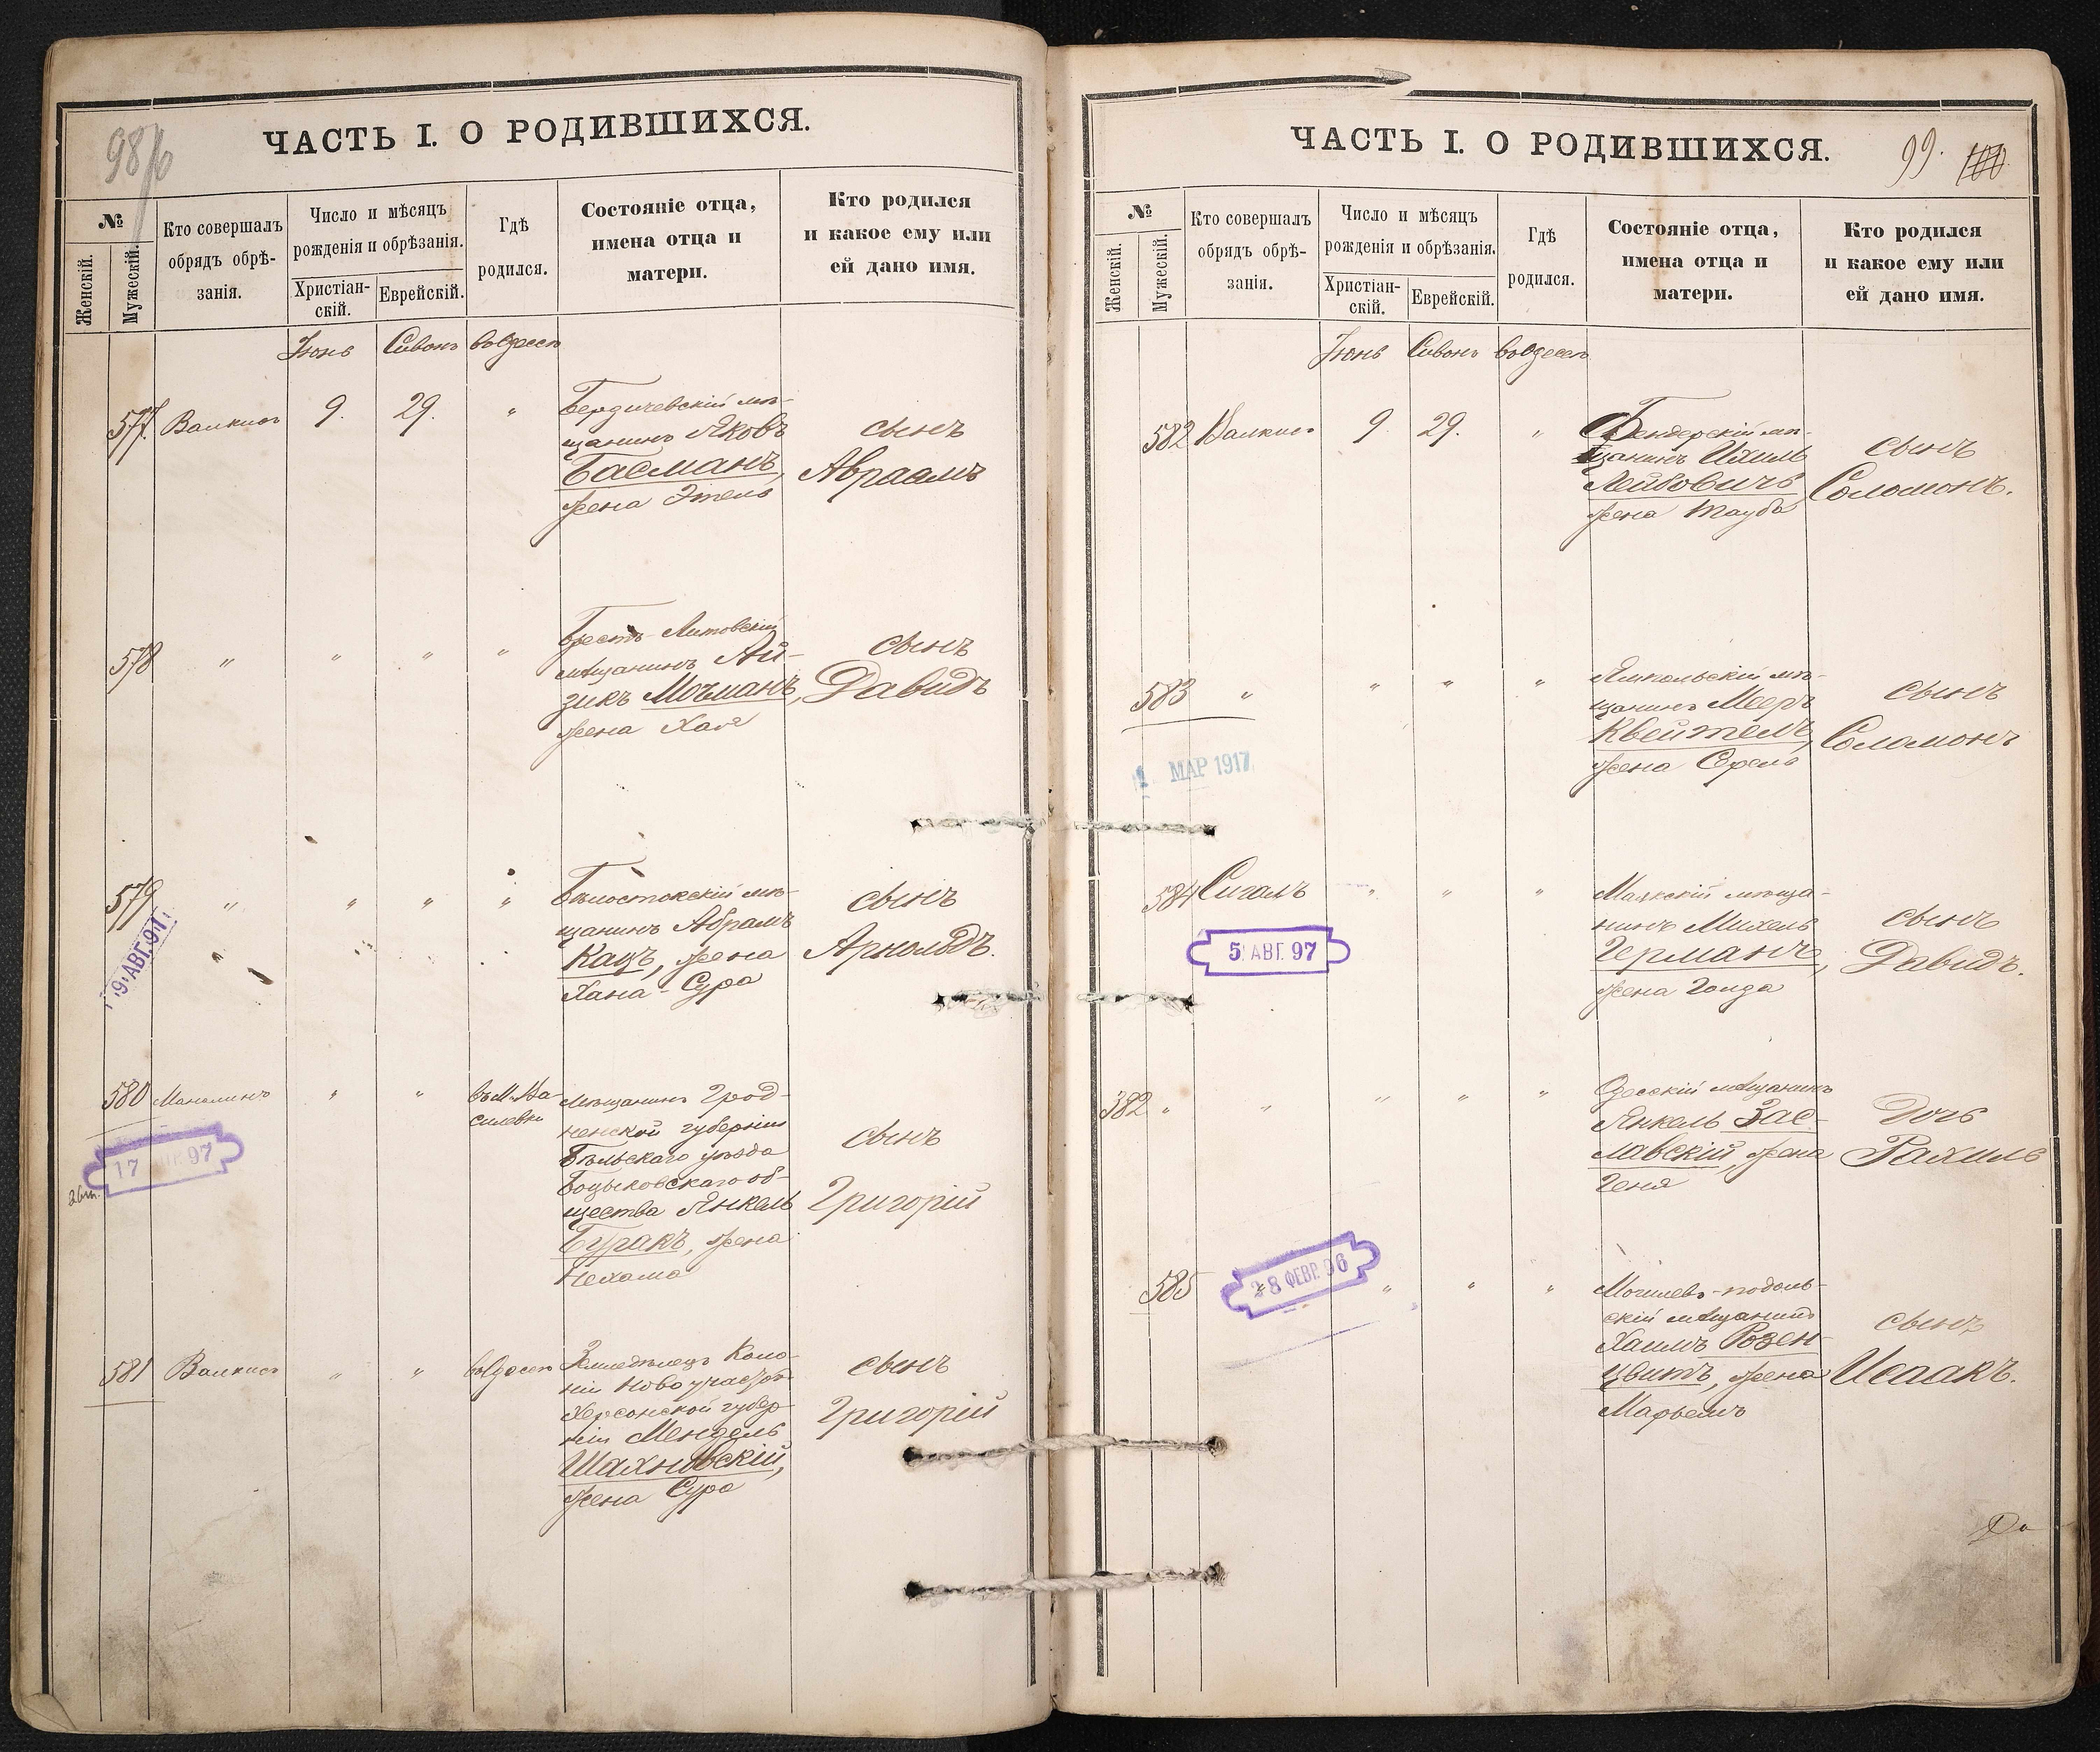 98/б
ЧАСТЬ I. О РОДИВШИХСЯ.
№
Женскій.
Мужескій.
Кто совершалъ
обрядъ обрѣ-
занія.
Число и мѣсяцъ
рожденія и обрѣзанія.
Христіан-
скій.
Еврейскій.
Гдѣ
родился.
Состояніе отца,
имена отца и
матери.
Кто родился
и какое ему или
ей дано имя.
Іюнь Сивонъ въ Одессѣ
577. Валкисъ 9. 29. "
Бердичевскій мѣ-
щанинъ Яковъ
Басманъ,
жена Этель
сынъ
Авраамъ
578 " " " "
Брестъ-Литовскій
мѣщанинъ Ай-
зикъ Мочманъ,
жена Хая
сынъ
Давидъ
579 " " " "
Бѣлостокскій мѣ-
щанинъ Абрамъ
Кацъ, жена
Хана-Сура
сынъ
Арнольдъ.
19 АВГ. 97
580 " "
въ М. Ва-
силевки
мѣщанинъ Грод-
ненской губерніи
Бѣльскаго уѣзда
Боцьковскаго об-
щества Янкель
Буракъ, жена
Нехама
сынъ
Григорій
17 97
581 Валкисъ " " въ Одессѣ
Земледѣлецъ Коло-
ніи
Херсонской губер-
ніи Мендель
Шахновскій,
жена Сура
сынъ
Григорій
ЧАСТЬ I. О РОДИВШИХСЯ.
99. 100
№
Женскій.
Мужескій.
Кто совершалъ
обрядъ обрѣ-
занія.
Число и мѣсяцъ
рожденія и обрѣзанія.
Христіан-
скій.
Еврейскій.
Гдѣ
родился.
Состояніе отца,
имена отца и
матери.
Кто родился
и какое ему или
ей дано имя.
Іюнь Сивонъ въ Одессѣ
582 Валкисъ 9. 29. "
Бендерскій мѣ-
щанинъ Ихиль
Лейбовичъ,
жена Тауба
сынъ
Соломонъ.
583 " " " "
Ямпольскій мѣ-
щанинъ Мееръ
Квейтель,
жена
сынъ
Соломонъ
1 МАР 1917
584 Сигалъ " " "
мѣща-
нинъ Михель
Германъ,
жена Голда
сынъ
Давидъ.
5 АВГ. 97
382 " " " " "
Одесскій мѣщанинъ
Янкель Зас-
лавскій, жена
Геня
Дочь
Рахиль
585 " " "
28 ФЕВР. 96
Могилевъ-подоль-
скій мѣщанинъ
Хаимъ Розен-
цвитъ, жена
Марьемъ
сынъ
Исаакъ.